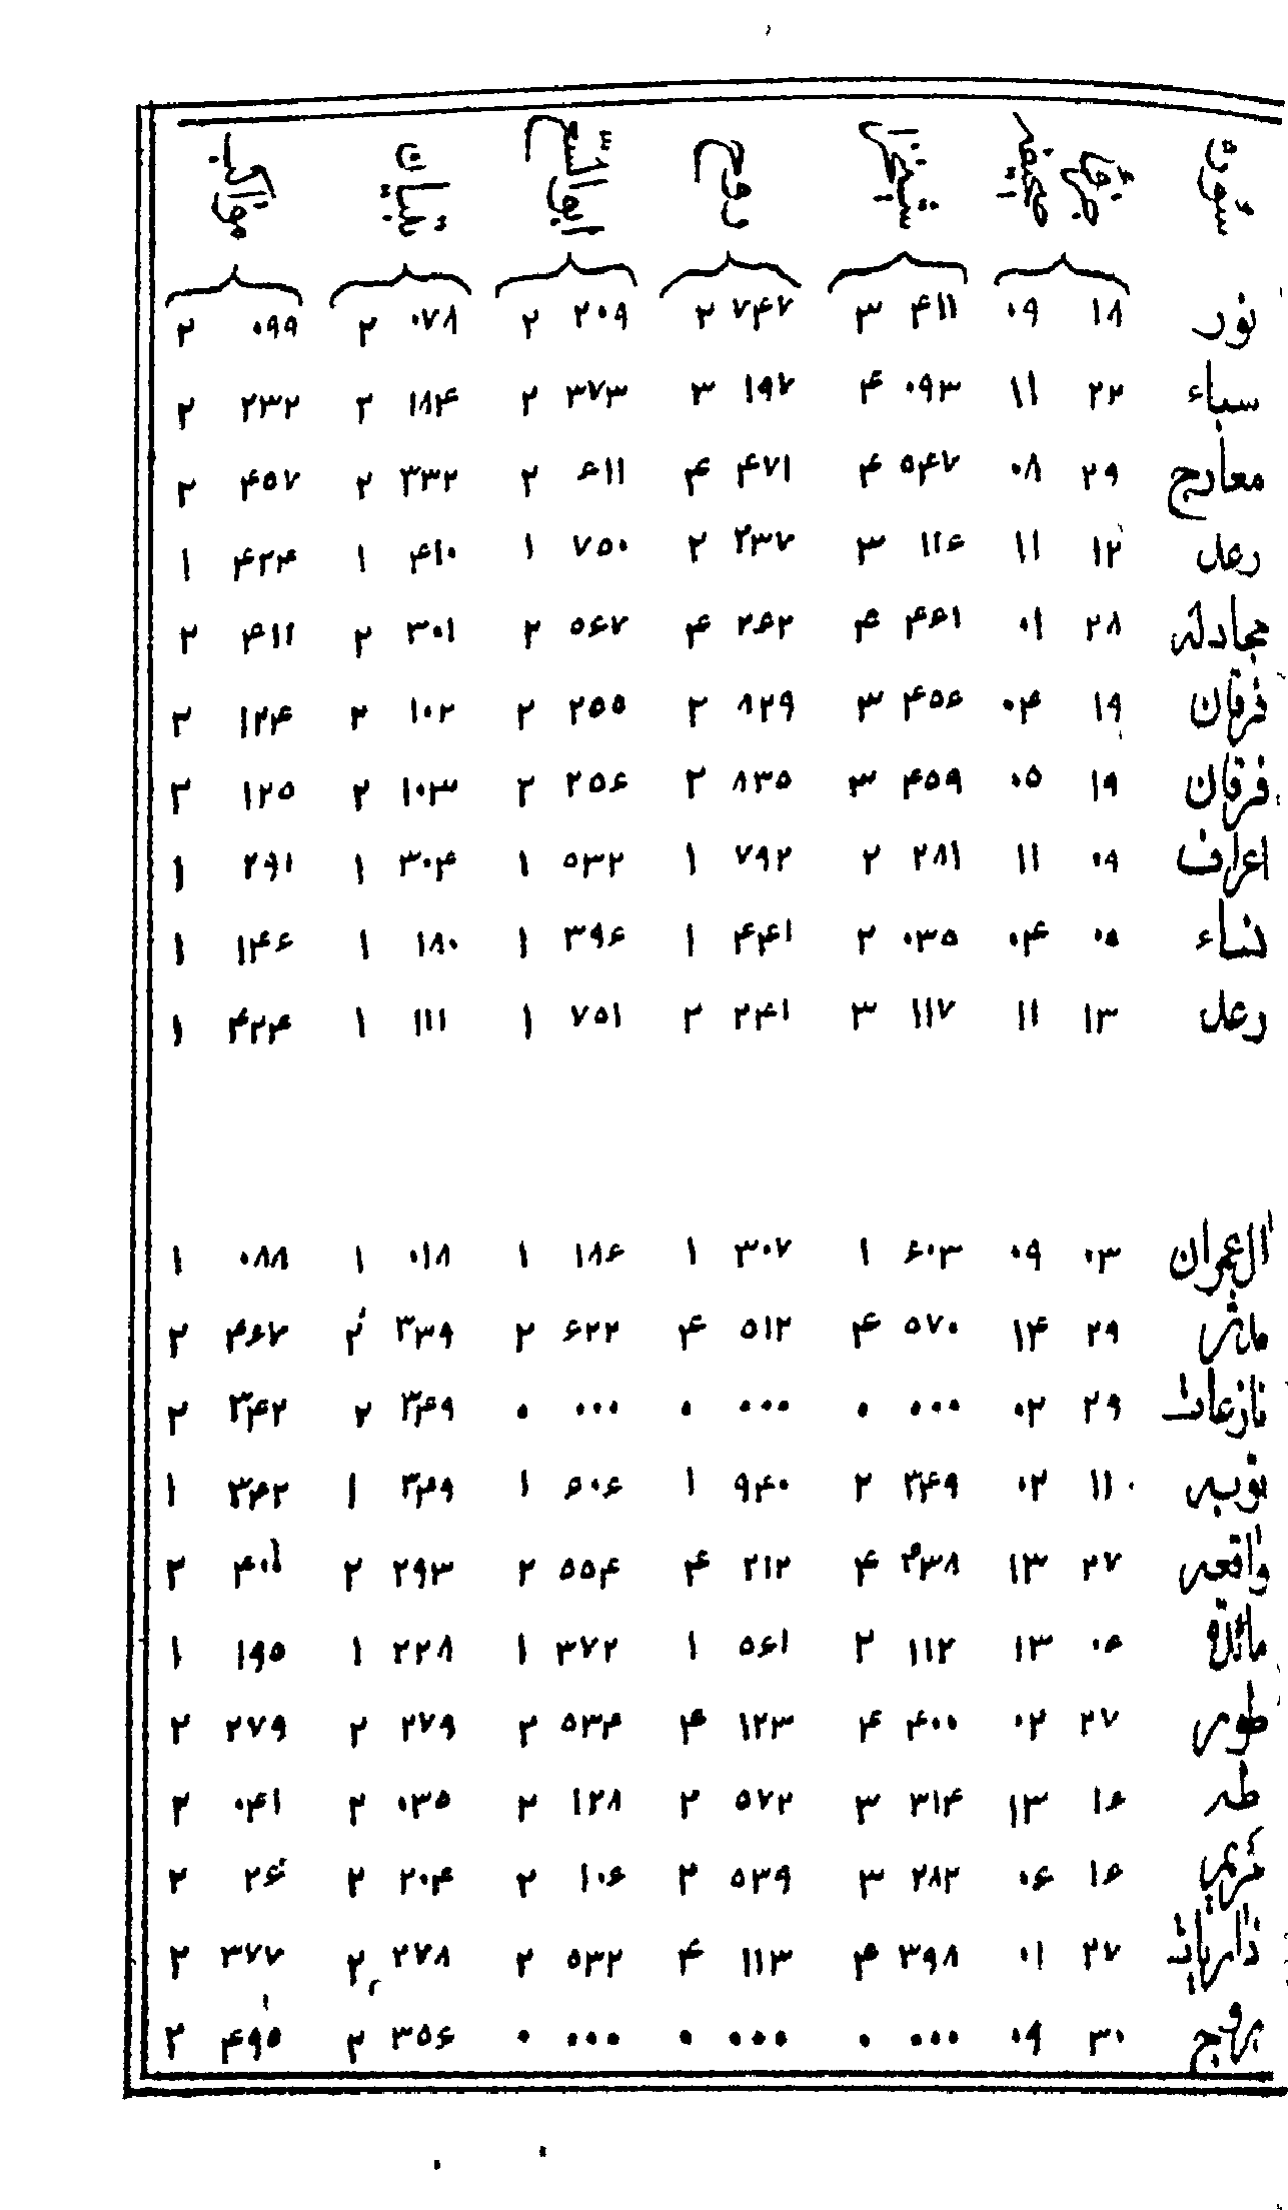 سوره جزء صفحه شیخ روح ابو الفتوح تبیان مواکب
نور ۱۸ ۰۹ ۴۱۱ ۳ ۷۴۷ ۲ ۲۰۹ ۲ ۰۷۸ ۲ ۰۹۹ ۲
سباء ۲۲ ۱۱ ۰۹۳ ۴ ۱۹۷ ۳ ۳۷۳ ۲ ۱۸۴ ۲ ۲۳۲ ۲
معارج ۲۹ ۰۸ ۵۴۷ ۴ ۴۷۱ ۴ ۶۱۱ ۲ ۳۳۲ ۲ ۴۵۷ ۲
رعد ۱۲ ۱۱ ۱۱۶ ۳ ۲۳۷ ۲ ۷۵۰ ۱ ۴۱۰ ۱ ۴۲۴ ۱
مجادله ۲۸ ۰۱ ۴۶۱ ۴ ۲۶۲ ۴ ۵۶۷ ۲ ۳۰۱ ۲ ۴۱۱ ۲
فرقان ۱۹ ۰۴ ۴۵۶ ۳ ۸۲۹ ۲ ۲۵۵ ۲ ۱۰۲ ۲ ۱۲۴ ۲
فرقان ۱۹ ۰۵ ۴۵۹ ۳ ۸۳۵ ۲ ۲۵۶ ۲ ۱۰۳ ۲ ۱۲۵ ۲
اعراف ۰۹ ۱۱ ۲۸۱ ۲ ۷۹۲ ۱ ۵۳۲ ۱ ۳۰۴ ۱ ۲۹۱ ۱
نساء ۰۵ ۰۴ ۰۳۵ ۲ ۴۴۱ ۱ ۳۹۶ ۱ ۱۸۰ ۱ ۱۴۶ ۱
رعد ۱۳ ۱۱ ۱۱۷ ۳ ۲۴۱ ۲ ۷۵۱ ۱ ۱۱۱ ۱ ۴۲۴ ۱
ال عمران ۰۳ ۰۹ ۶۰۳ ۱ ۳۰۷ ۱ ۱۸۶ ۱ ۰۱۸ ۱ ۰۸۸ ۱
مدثر ۲۹ ۱۴ ۵۷۰ ۴ ۵۱۲ ۴ ۶۲۲ ۲ ۳۳۹ ۲ ۴۶۷ ۲
نازعات ۲۹ ۰۲ ۰۰۰ ۰ ۰۰۰ ۰ ۰۰۰ ۰ ۳۴۹ ۲ ۳۴۲ ۲
توبه ۱۱ ۰۲ ۳۴۹ ۲ ۹۴۰ ۱ ۶۰۶ ۱ ۳۴۹ ۱ ۳۴۲ ۱
واقعه ۲۷ ۱۳ ۴۳۸ ۴ ۲۱۲ ۴ ۵۵۴ ۲ ۲۹۳ ۲ ۴۰۱ ۲
مائده ۰۶ ۱۳ ۱۱۲ ۲ ۵۶۱ ۱ ۳۷۲ ۱ ۲۲۸ ۱ ۱۹۵ ۱
طور ۲۷ ۰۲ ۴۰۰ ۴ ۱۲۳ ۴ ۵۳۴ ۲ ۲۷۹ ۲ ۲۷۹ ۲
طه ۱۶ ۱۳ ۳۱۴ ۳ ۵۷۲ ۲ ۱۲۸ ۲ ۰۳۵ ۲ ۰۴۱ ۲
مریم ۱۶ ۰۶ ۲۸۲ ۳ ۵۳۹ ۲ ۱۰۶ ۲ ۲۰۴ ۲ ۲۶ ۲
ذاریات ۲۷ ۰۱ ۳۹۸ ۴ ۱۱۳ ۴ ۵۳۲ ۲ ۲۷۸ ۲ ۳۷۷ ۲
بروج ۳۰ ۰۹ ۰۰۰ ۰ ۰۰۰ ۰ ۰۰۰ ۰ ۳۵۶ ۲ ۴۹۵ ۲